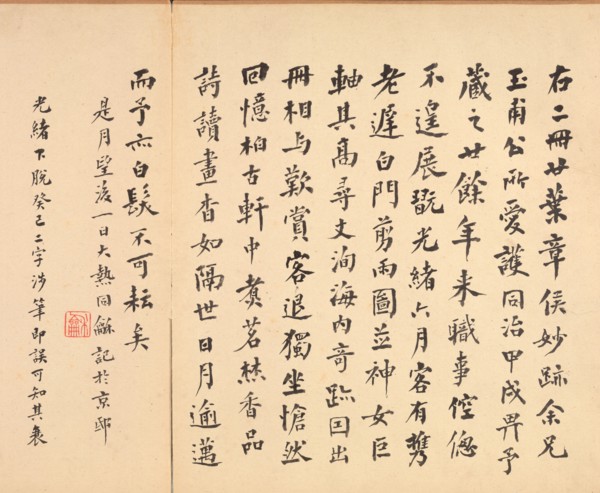 右二冊廿葉章侯妙跡余兄
玉甫公所愛護同治甲戌畀予
藏之廿餘年来職事倥偬
不遑展翫光緒六月客有攜
老遲白門剪雨圖並神女巨
軸其高尋丈洵海内奇跡因出
冊相与歎賞客退獨坐愴然
回憶柏古軒中煮茗焚香品
詩讀畫杳如隔世日月逾邁
而予亦白髮不可耘矣
是月望後一日大熱同龢記於京邸
光緒下脫癸巳二字涉筆即誤可知其衰